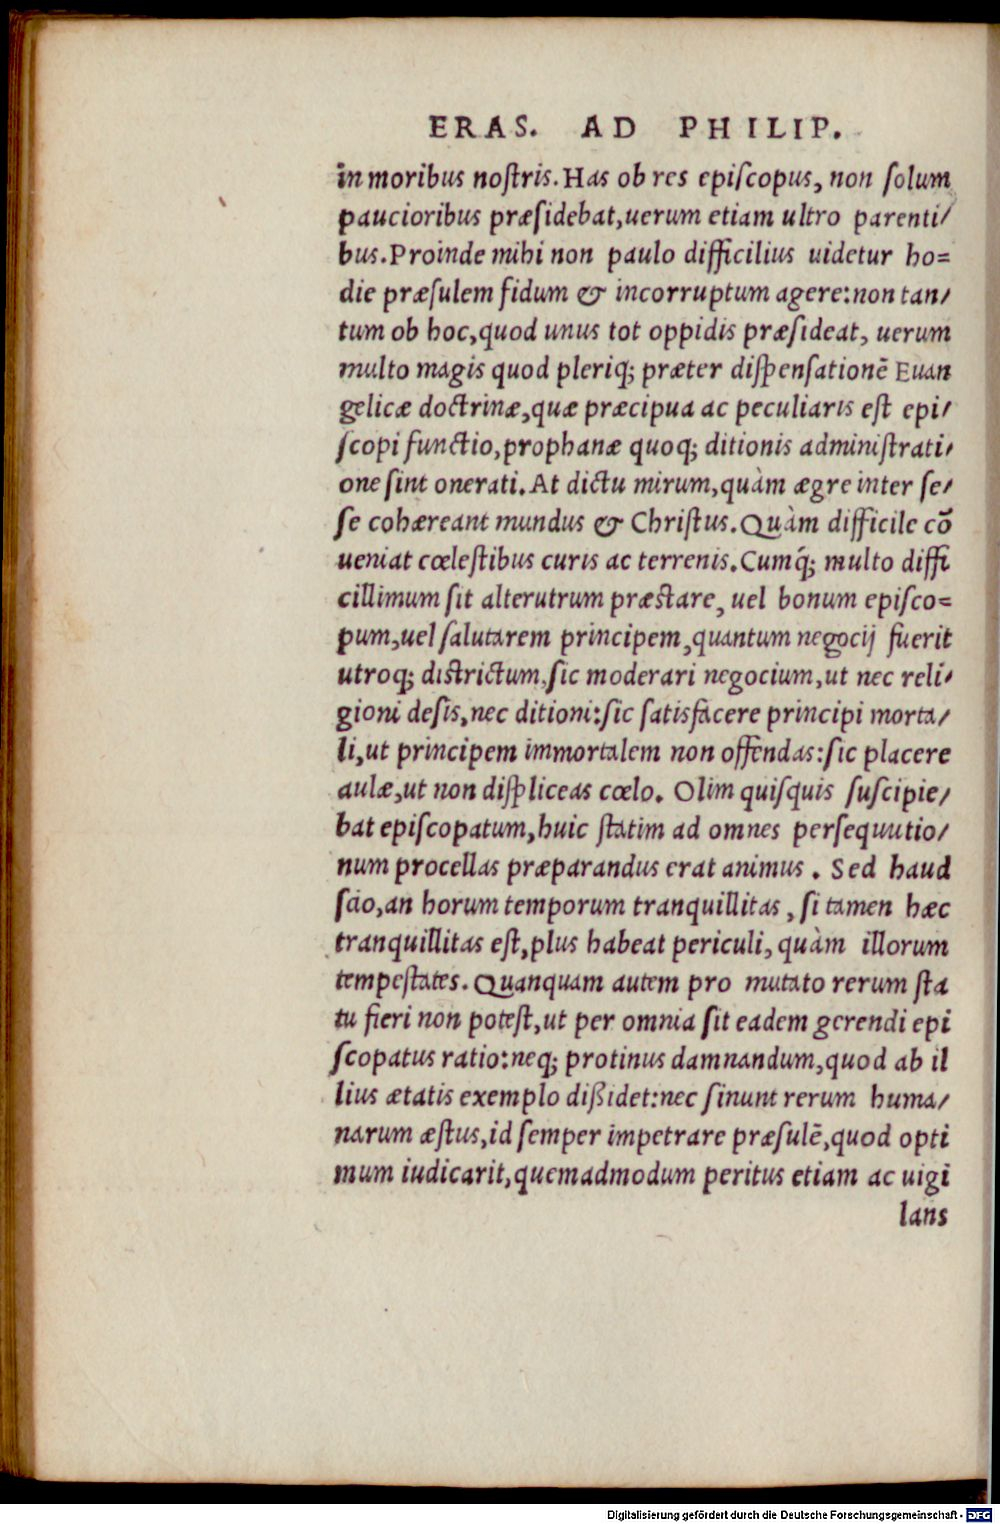 ERAS. AD PHILIP.
in moribus nostris. Has ob res episcopus, non solum
paucioribus præsidebat, uerum etiam ultro parenti/
bus. Proinde mihi non paulo difficilius uidetur ho=
die præsulem fidum & incorruptum agere: non tan/
tum ob hoc, quod unus tot oppidis præsideat, uerum
multo magis quod pleriq; præter dispensationē Euan
gelicæ doctrinæ, quæ præcipua ac peculiaris est epi/
scopi functio, prophanæ quoq; ditionis administrati/
one sint onerati. At dictu mirum, quàm ægre inter se/
se cohæreant mundus & Christus. Quàm difficile cō
ueniat cœlestibus curis ac terrenis. Cumq́; multo diffi
cillimum sit alterutrum præstare, uel bonum episco=
pum, uel salutarem principem, quantum negocij fuerit
utroq; districtum, sic moderari negocium, ut nec reli/
gioni desis, nec ditioni: sic satisfacere principi morta/
li, ut principem immortalem non offendas: sic placere
aulæ, ut non displiceas cœlo. Olim quisquis suscipie/
bat episcopatum, huic statim ad omnes persequutio/
num procellas præparandus erat animus. Sed haud
scio, an horum temporum tranquillitas, si tamen hæc
tranquillitas est, plus habeat periculi, quàm illorum
tempestates. Quanquam autem pro mutato rerum sta
tu fieri non potest, ut per omnia sit eadem gerendi epi
scopatus ratio: neq; protinus damnandum, quod ab il
lius ætatis exemplo dißidet: nec sinunt rerum huma/
narum æstus, id semper impetrare præsulē, quod opti
mum iudicarit, quemadmodum peritus etiam ac uigi
lans
Digitalisierung gefördert durch die Deutsche Forschungsgemeinschaft - DFG